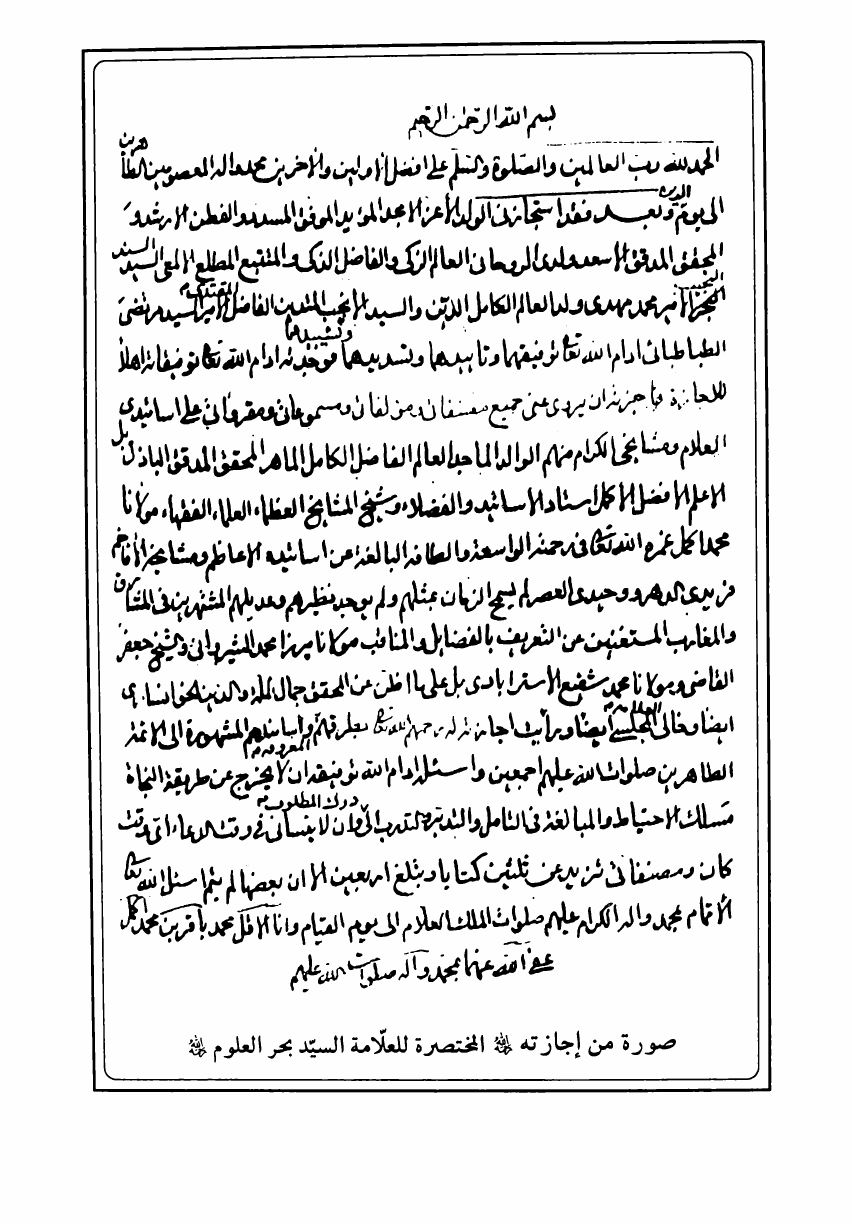 بسم الله الرحمن الرحيم
الحمد لله رب العالمين والصلوة والسلم على افضل الاولين والاخرين محمد واله المعصومين الطاهرين
الى يوم الدين وبعد فقد استجازنى الولد الاعز الامجد المؤيد الموفق المسدد والفطن الارشد و
المحقق المدقق الاسعد ولدى الروحانى العالم الزكى والفاضل الذكى والمتتبع المطلع الالمعى السيد السند
النجيب الامير محمد مهدى ولد العالم الكامل الدين والسيد الانجب المتدين الفاضل المقتدى الامير السيد مرتضى
الطباطبائى ادام الله تعالى توفيقهما وتاييدهما وتسديدهما وتشييدهما فوجدته ادام الله تعالى توفيقاته اهلا
للاجازة فاجزته ان يروى عنى جميع مصنفاتى ومؤلفاتى ومسموعاتى ومقرواتى على اساتيدى
العلام ومشايخى الكرام منهم الوالد الماجد العالم الفاضل الكامل الماهر المحقق المدقق الباذل بل
الاعلم الافضل الاكمل استاد الاساتيد والفضلاء وشيخ المشايخ العظماء العلماء الفقهاء مولانا
محمد اكمل غمره الله تعالى فى رحمته الواسعة والطافه البالغة عن اساتيده الاعاظم ومشايخه الافاخم
فريدى الدهر ووحيدى العصر لم يسمح الزمان بمثلهم ولم يوجد نظيرهم وعديلهم المشتهرين فى المشارق
والمغارب المستغنين عن التعريف بالفضايل والمناقب مولانا ميرزا محمد الشيروانى والشيخ جعفر
القاضى ومولانا محمد شفيع الاسترابادى بل على ما اظن عن المحقق جمال الملة والدين الخوانسارى
ايضا وخالى العلامة المجلسى ايضا ورأيت اجازته له رحمهم الله تعالى بطرقهم واسانيدهم المعروفة المشهورة الى الائمة
الطاهرين صلوات الله عليهم اجمعين واسئله ادام الله توفيقه ان لا يخرج عن طريقة النجاة
مسلك الاحتياط والمبالغة فى التامل والتدبر لدرك المطلوب وان لا ينسانى فى وقت الدعاء اى وقت
كان ومصنفاتى تزيد عن ثلثين كتابا وتبلغ اربعين الا ان بعضها لم يتم اسئل الله تعالى
الاتمام بمحمد واله الكرام عليهم صلوات الملك العلام الى يوم القيام وانا الاقل محمد باقر بن محمد اكمل
عفى الله عنهما بمحمد وآله صلوات الله عليهم
صورة من إجازته ﷲ المختصرة للعلّامة السيّد بحر العلوم ﷲ